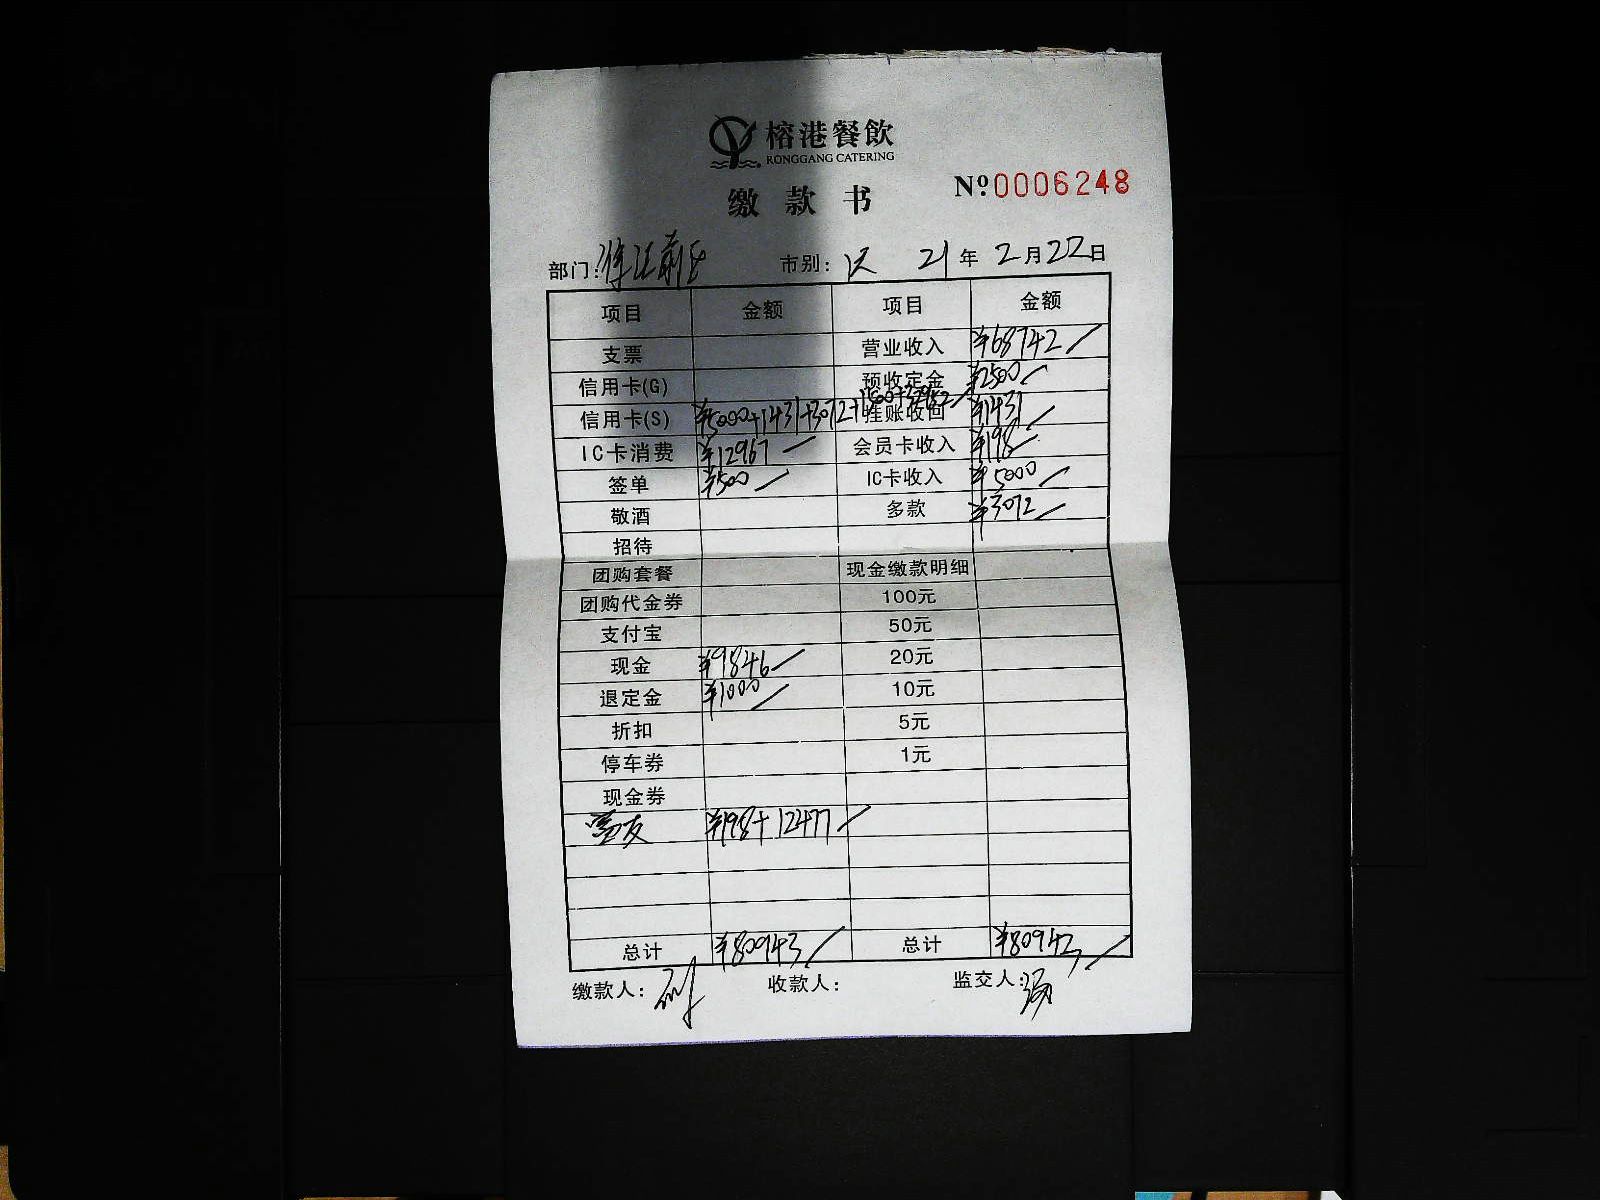 榕港餐飲
RONGGANG CATERING
缴款书
Nº 0006248
部门: 市别: 21年2月22日
项目 金额 项目 金额
支票 营业收入 ¥68742
信用卡(G) 预收定金 ¥2500
信用卡(S) ¥5000+1431+3072+1500+ 挂账收回 ¥1431
IC卡消费 ¥12967 会员卡收入 ¥198
签单 ¥500 IC卡收入 ¥5000
敬酒 多款 ¥3072
招待
团购套餐 现金缴款明细
团购代金券 100元
支付宝 50元
现金 ¥9846 20元
退定金 ¥1000 10元
折扣 5元
停车券 1元
现金券
¥198+12477
总计 ¥80943 总计 ¥80943
缴款人: 收款人: 监交人: